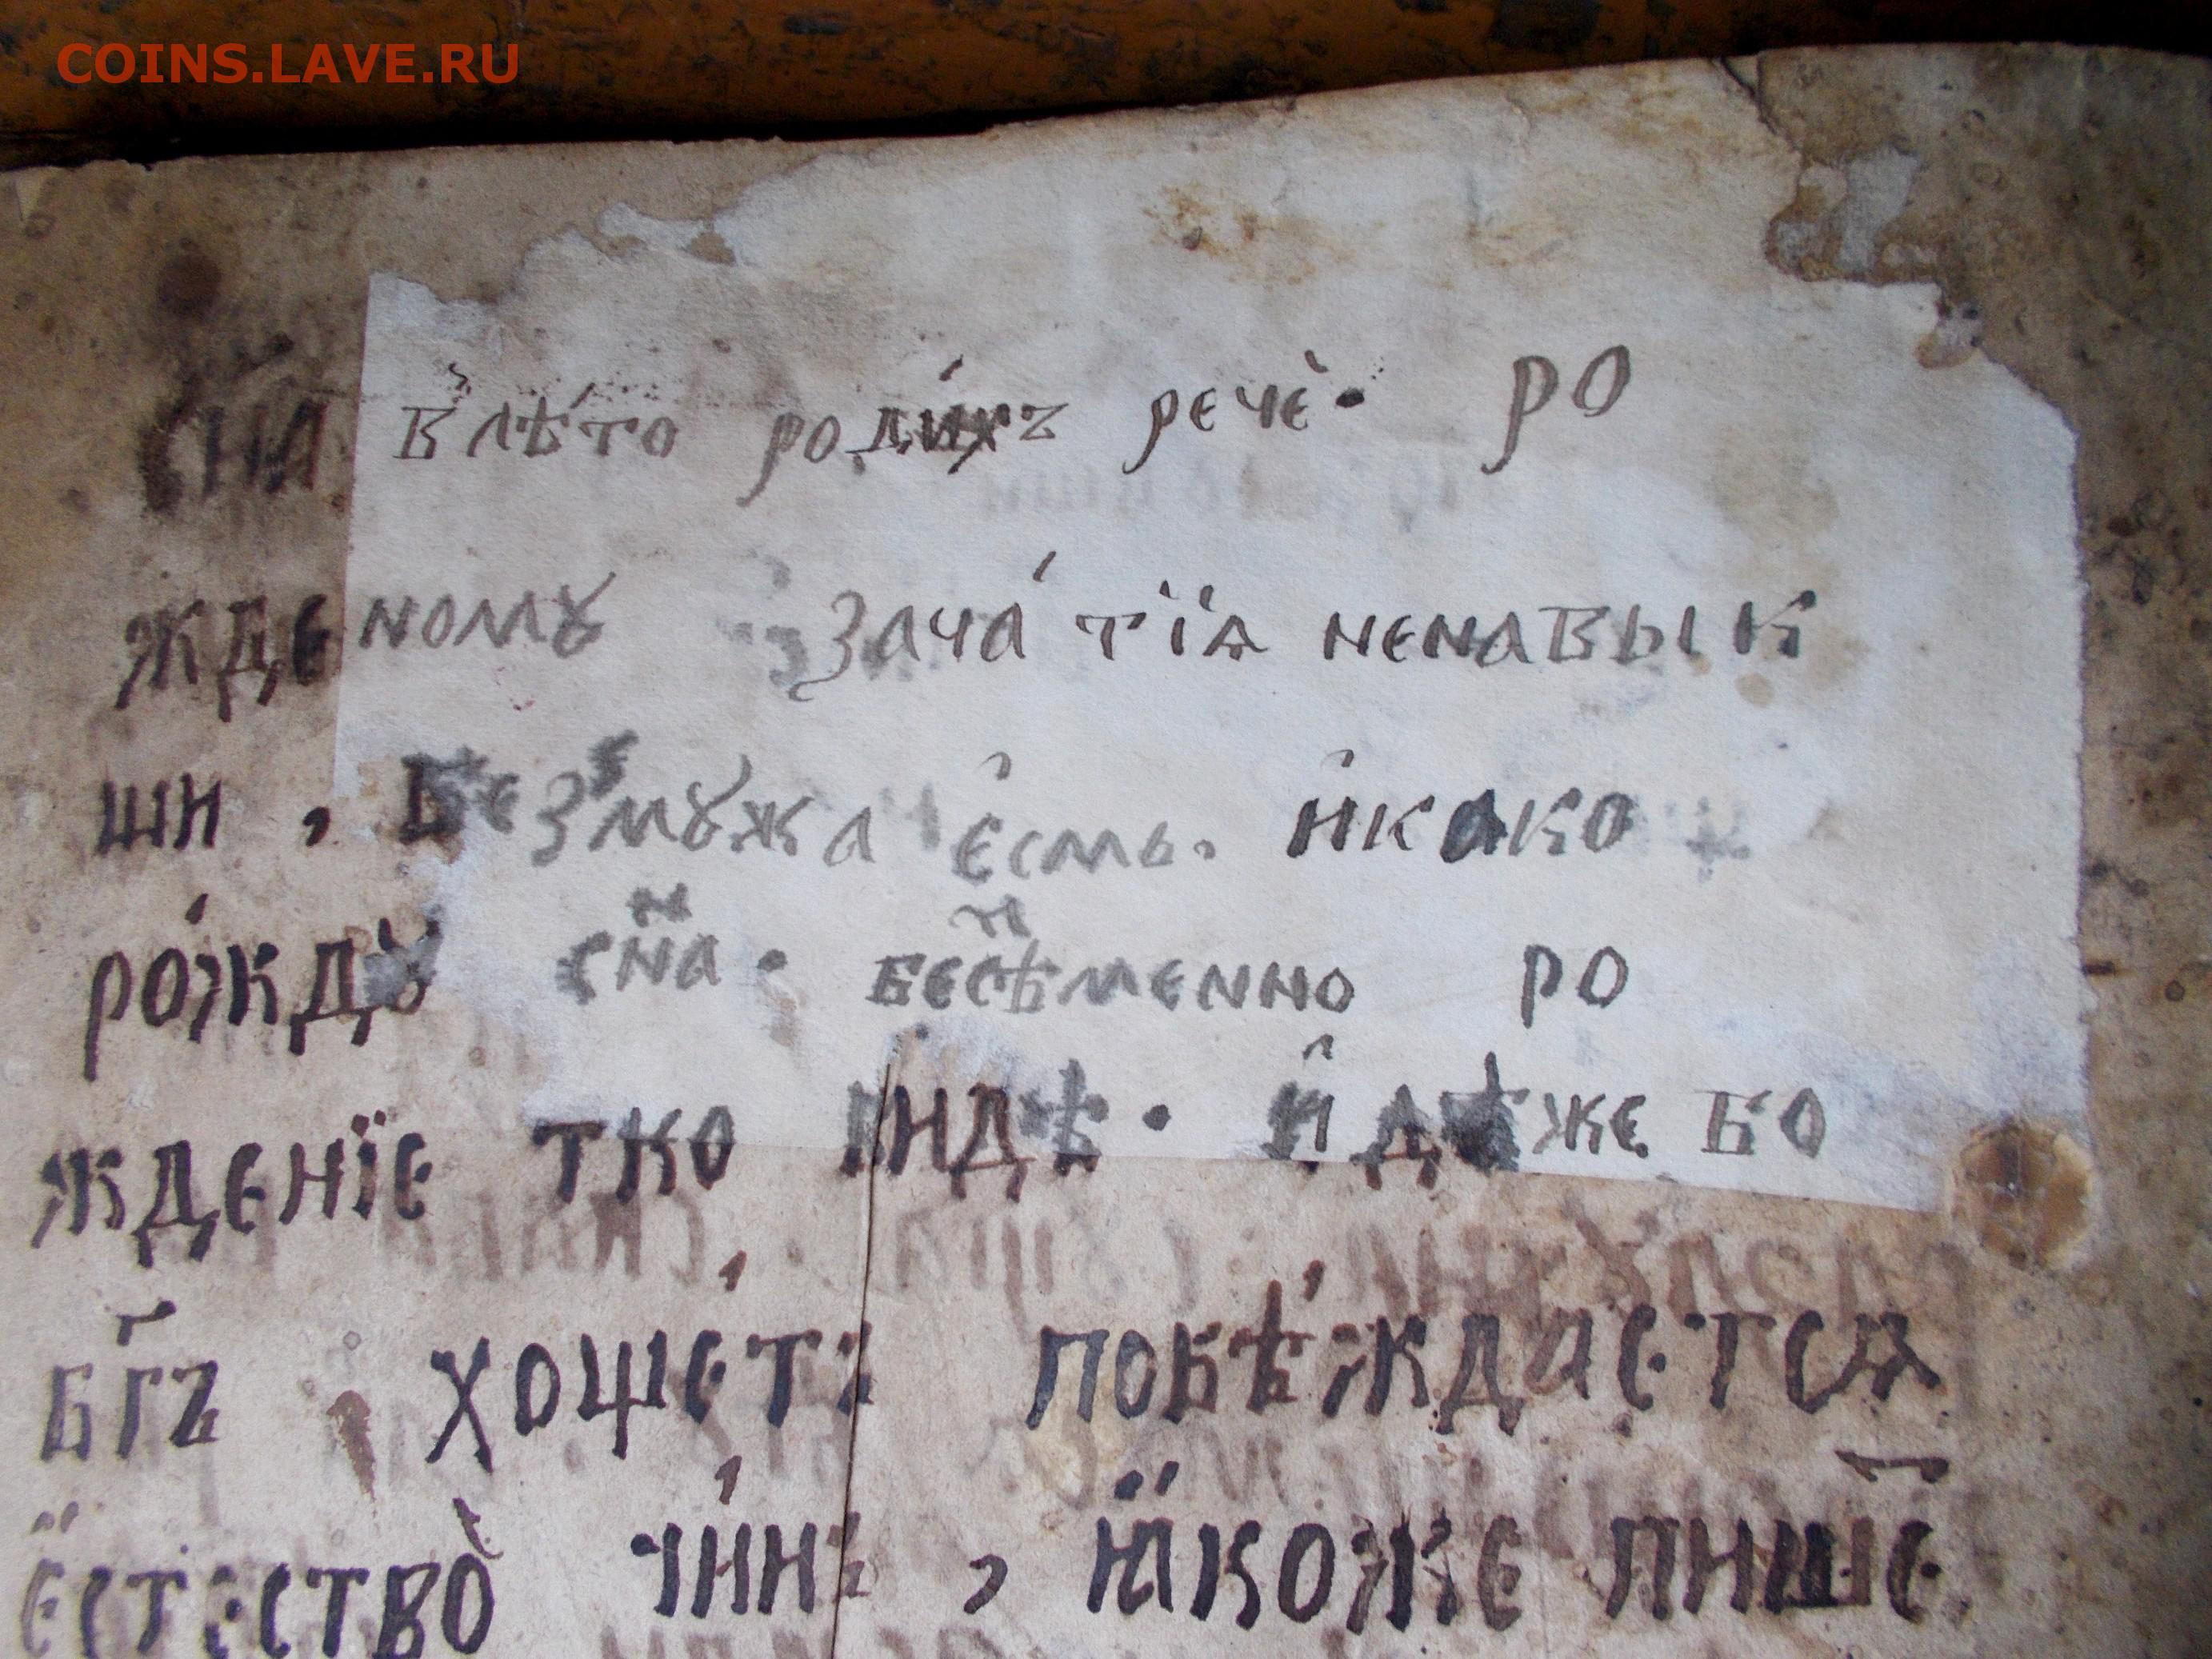 COINS.LAVE.RU
сн҃а влѣ́то роди́хъ речѐ· ро
жденомꙋ зача́тїѧ ненавык
ши, безмꙋжа є҆смь. и҆како
ро́ждꙋ сн҃а. бесѣменно ро
жденїе тко индѣ· и҆дѣже бо
бг҃ъ хоще́тъ побѣ́ждаетсѧ
є҆стество̀ чи́нъ, ꙗ҆коже пише